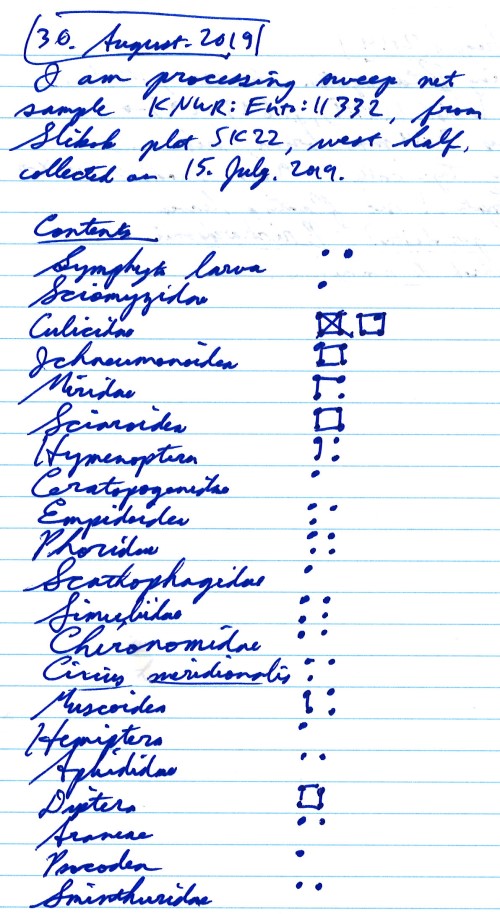 30. August. 2019
I am processing sweep net
sample KNWR:Ento:11332, from
Slikok plot SK22, west half,
collected on 15. July. 2019.
Contents
Symphyta larva
Sciomyzidae
Culicidae
Ichneumonoidea
Miridae
Sciaroidea
Hymenoptera
Ceratopogonidae
Empidoidea
Phoridae
Scathophagidae
Simuliidae
Chironomidae
Cixius meridionalis
Muscoidea
Hemiptera
Aphididae
Diptera
Araneae
Psocodea
Sminthuridae